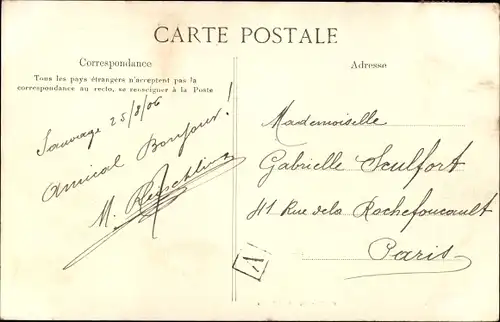 CARTE POSTALE
Correspondance
Tous les pays étrangers n'acceptent pas la
correspondance au recto, se renseigner à la Poste
Sauvage 25/8/06
Amical Bonjour!
M.
Adresse
Mademoiselle
Gabrielle Seulfort
41 Rue de la Rochefoucault
Paris
A